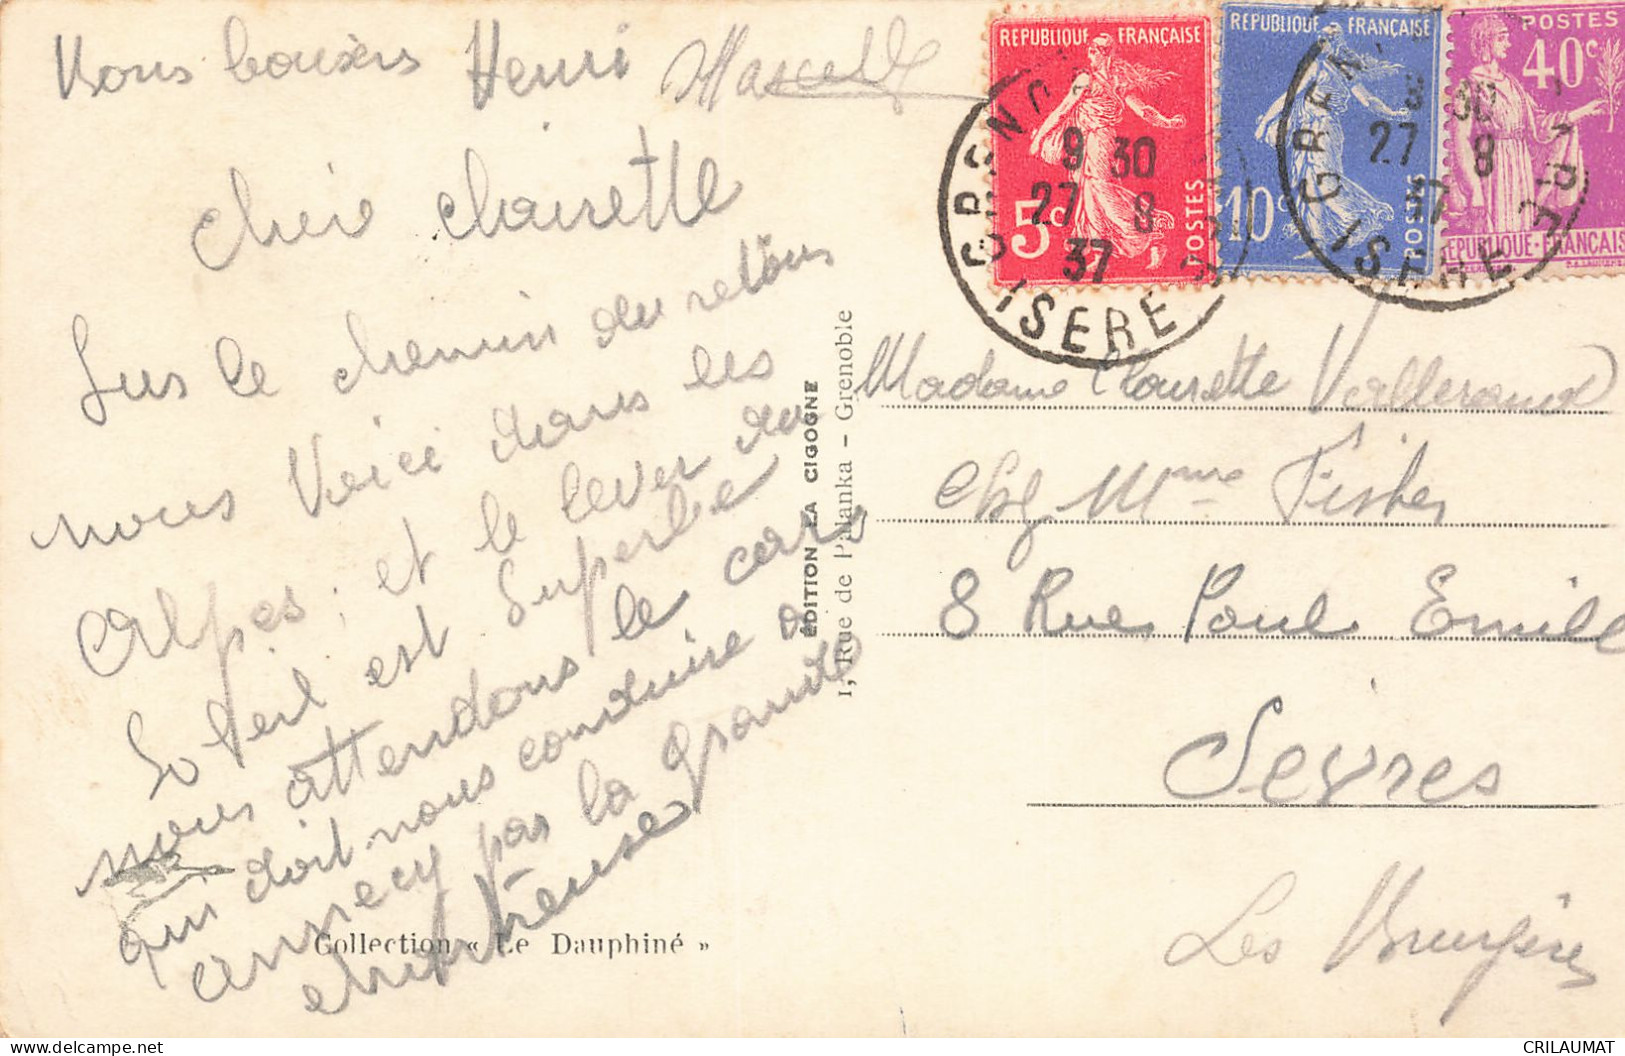 Bons baisers Henri Marcelle
Chère Clairette
Sur le chemin du retour
nous voici dans les
Alpes; et le lever du
Soleil est superbe
nous attendons le car
qui doit nous conduire a
annecy par la grande
chartreuse
Collection « Le Dauphiné »
ÉDITION LA CIGOGNE
1, Rue de Palanka - Grenoble
REPUBLIQUE FRANÇAISE
5c POSTES
REPUBLIQUE FRANÇAISE
10c POSTES
POSTES
40c
REPUBLIQUE-FRANÇAIS
GRENOBLE
9 30
27 8
37
ISERE
GREN
9 30
27 8
37
ISERE
Madame Clairette Valleraux
Chez Mme Fisher
8 Rue Paul Emile
Sèvres
Les Bruyères
CRILAUMAT